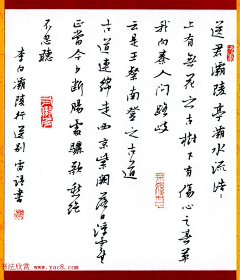 送君灞陵亭灞水流浩浩
上有无花之古树下有伤心之春草
我向秦人问路歧
云是王粲南登之古道
古道连绵走西京紫阙落日浮云生
正当今夕断肠处骊歌愁绝
不忍听
李白灞陵行送别 雷诗书
书法欣赏 www.yac8.com